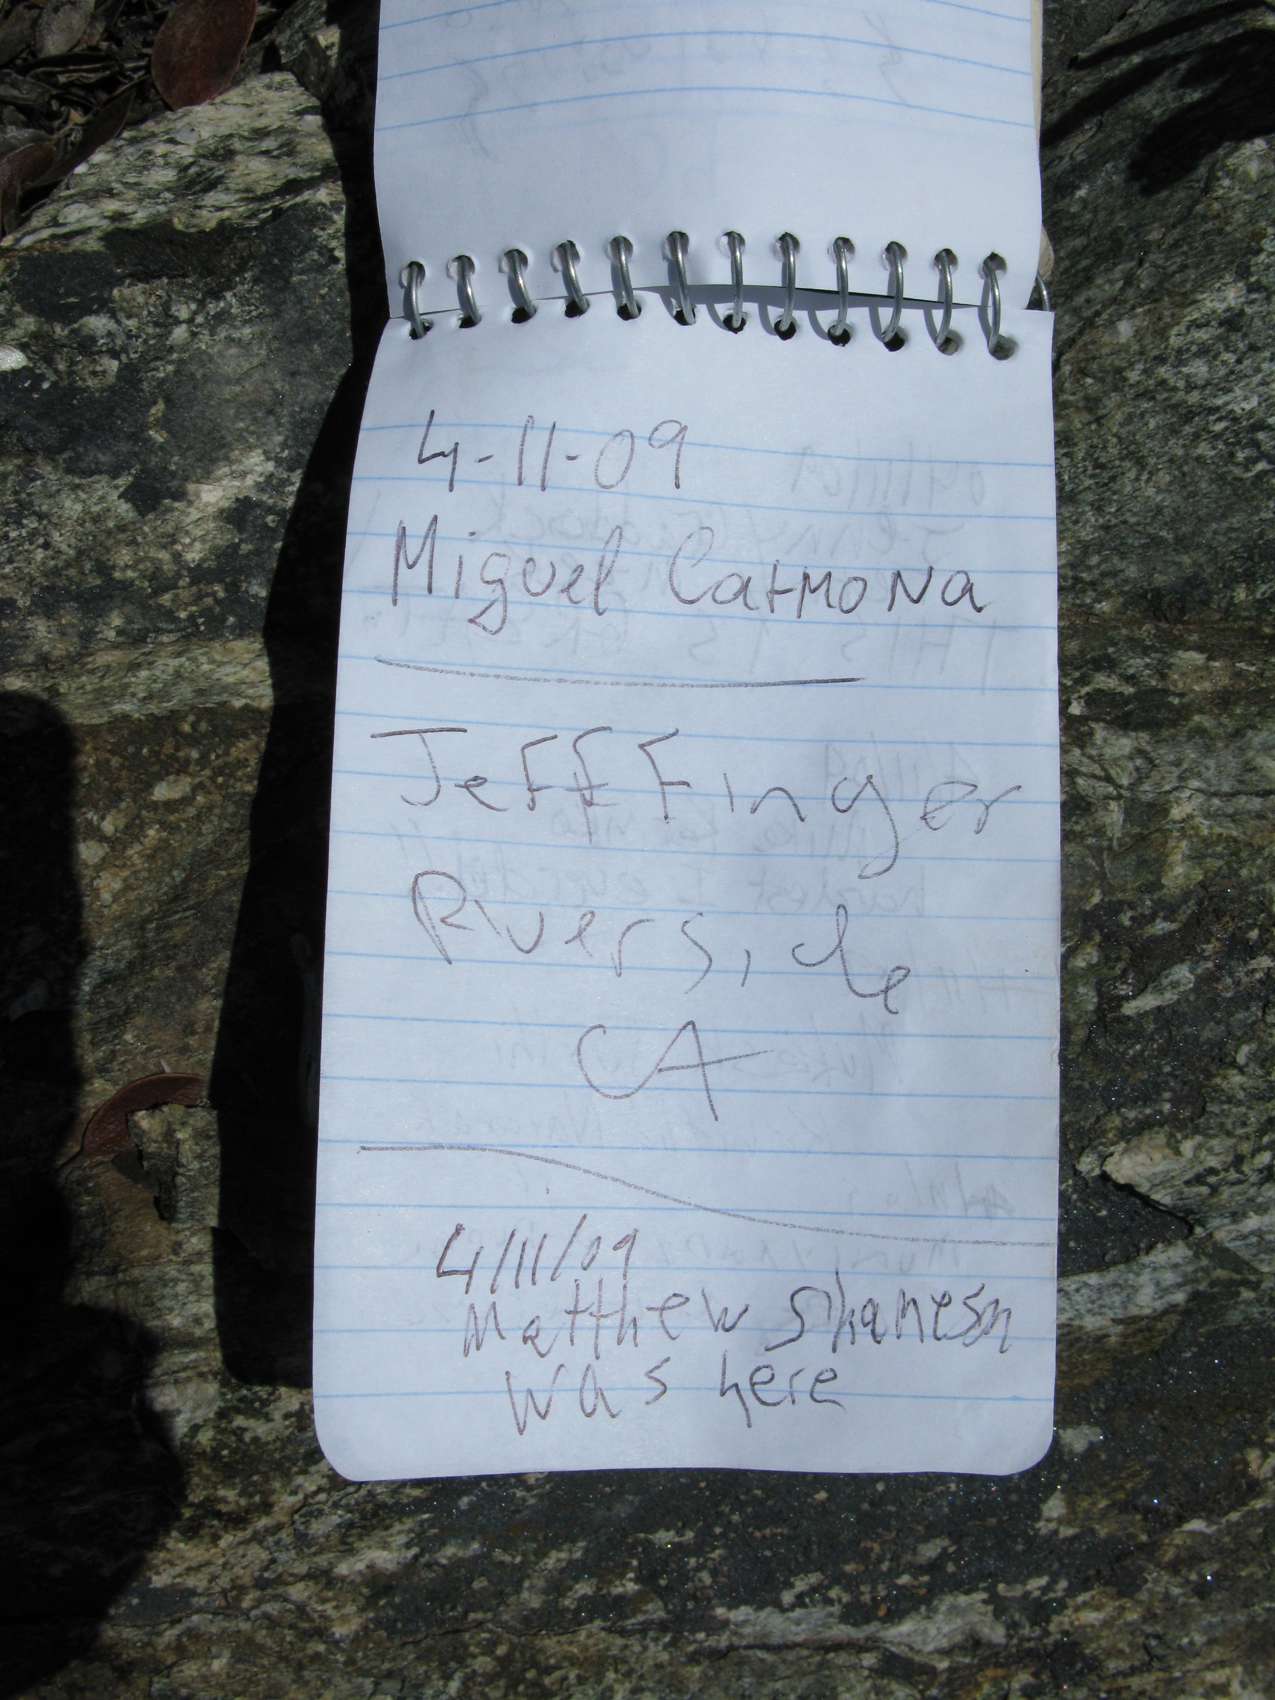 4-11-09
Miguel Carmona
Jeff Finger
Riverside
CA
4/11/09
Matthew
was here